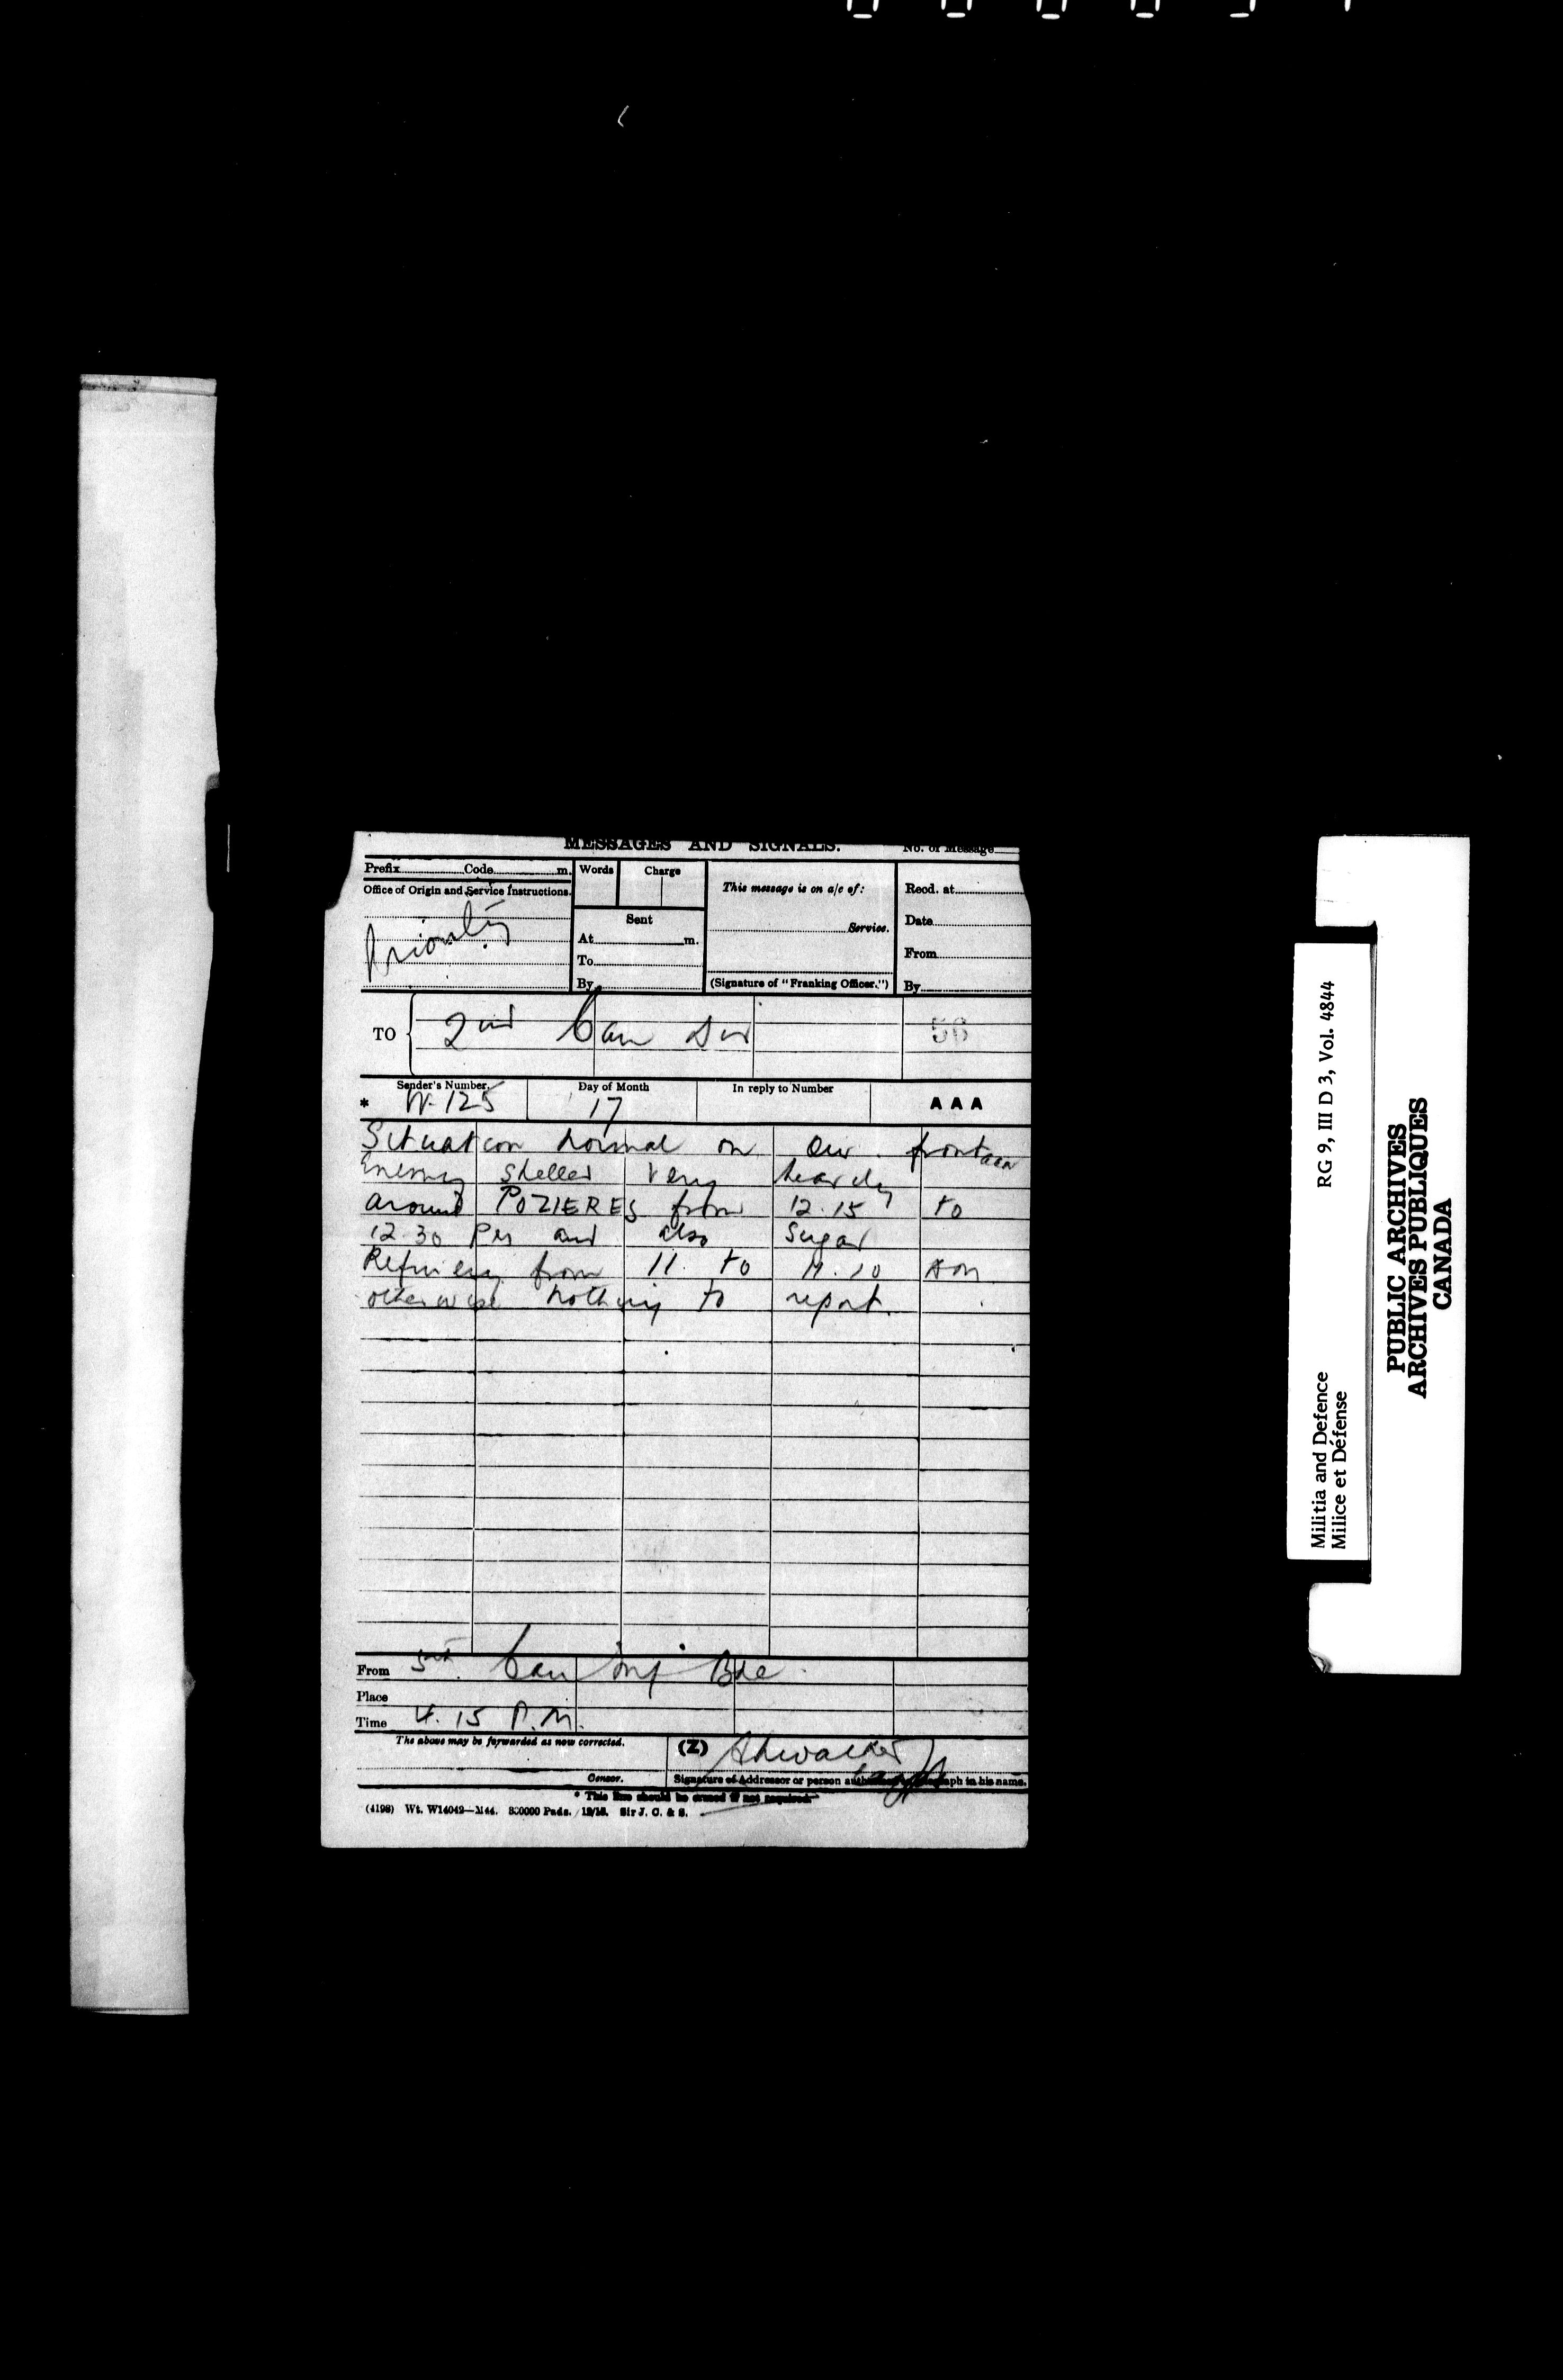 MESSAGES AND SIGNALS. No. of Message
Prefix Code m. Words Charge
Office of Origin and Service Instructions.
Priority
Sent
At m.
To
By
This message is on a/c of:
Service.
(Signature of "Franking Officer.")
Recd. at
Date
From
By
TO 2nd Can Div 56
Sender's Number. Day of Month In reply to Number
* W.125 17 AAA
Situation normal on our front aaa
Enemy shelled very heavily
around POZIERES from 12.15 to
12.30 PM and also Sugar
Refinery from 11. to 11.10 AM
otherwise nothing to report.
From 5th Can Inf Bde
Place
Time 4.15 P.M.
The above may be forwarded as now corrected. (Z)
Censor. Signature of Addressor or person telegraph in his name.
* This line should be erased if not required.
(4198) Wt. W14042—M44. 300000 Pads. 12/15. Sir J. C. & S.
Militia and Defence RG 9, III D 3, Vol. 4844
Milice et Défense
PUBLIC ARCHIVES
ARCHIVES PUBLIQUES
CANADA